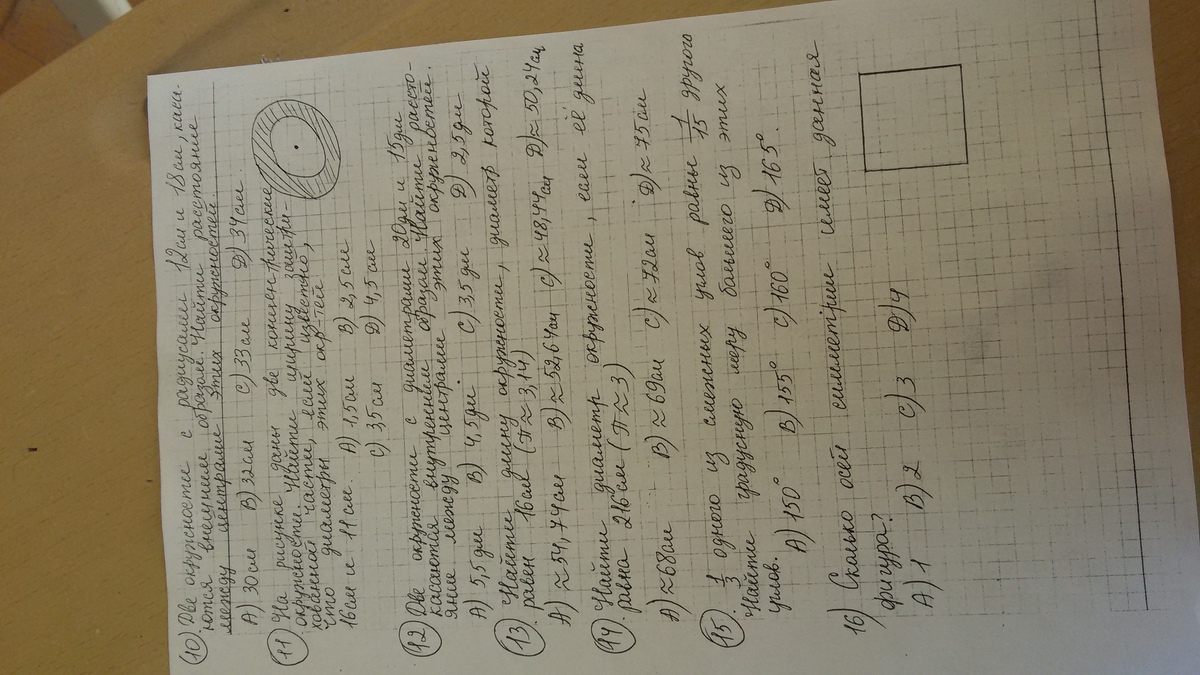 10) Две окружности с радиусами 12см и 18см, каса-
ются внешним образом. Найти расстояние
между центрами этих окружностей.
А) 30см В) 32см С) 33см D) 34см.
11) На рисунке даны две концентрические
окружности. Найти ширину заштри-
хованной части, если известно,
что диаметры этих окр-тей
16см и 11см. А) 1,5см В) 2,5см
С) 3,5см D) 4,5см
12) Две окружности с диаметрами 20дм и 15дм
касаются внутренним образом. Найти рассто-
яние между центрами этих окружностей.
А) 5,5дм В) 4,5дм С) 3,5дм D) 2,5дм
13. Найти длину окружности, диаметр которой
равен 16см (π≈3,14)
А) ≈54,74см В) ≈52,64см С) ≈48,44см D) ≈50,24см
14. Найти диаметр окружности, если её длина
равна 216см (π≈3)
А) ≈68см В) ≈69см С) ≈72см D) ≈75см
15. 1/3 одного из смежных углов равны 1/15 другого
Найти градусную меру большего из этих
углов.
А) 150° В) 155° С) 160° D) 165°.
16) Сколько осей симметрии имеет данная
фигура?
А) 1 В) 2 С) 3 D) 4